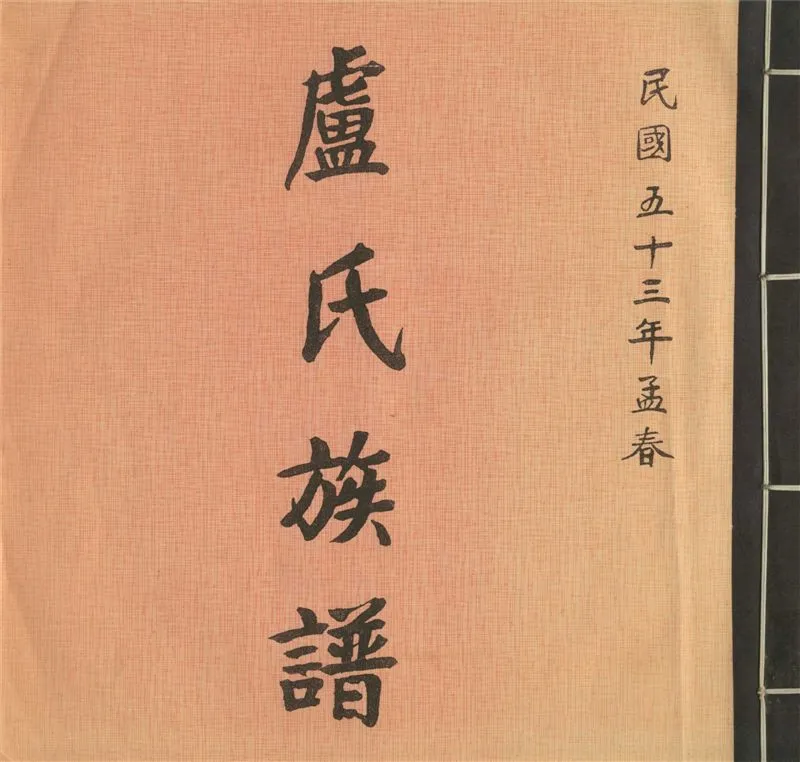 民國五十三年孟春
盧氏族譜